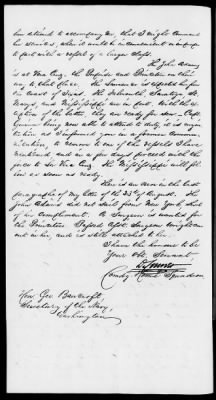 him attend to accompany me, that I might command
his services, when it would be inconvenient or unsafe
to part with a vessel of a larger class.
The John Adams
is at Vera Cruz, the Porpoise and Princeton on their
way to that place. The Lawrence is expected to join
in coast of Texas. The Falmouth, Saratoga, St.
Marys, and Mississippi are in port. With the ex-
ception of the latter, they are ready for sea. Capt.
being now able to attend to duty, is to re-
turn him as I informed you in a former commu-
nication, to assume to one of the vessels I have
mentioned and in a few days proceed with the
to Vera Cruz. The Mississippi will fol-
low as soon as ready.
There is an error in the last
paragraph of my letter of the 23d of August. The
John Adams did not sail from New York, short
of her compliment. A Surgeon is wanted for
the Princeton. Passed Asst. Surgeon
out in her, and is still attached to her.
I have the honour to be
Your Obt. Servant
Comdg Home Squadron
Hon. Geo. Bancroft,
Secretary of the Navy,
Washington